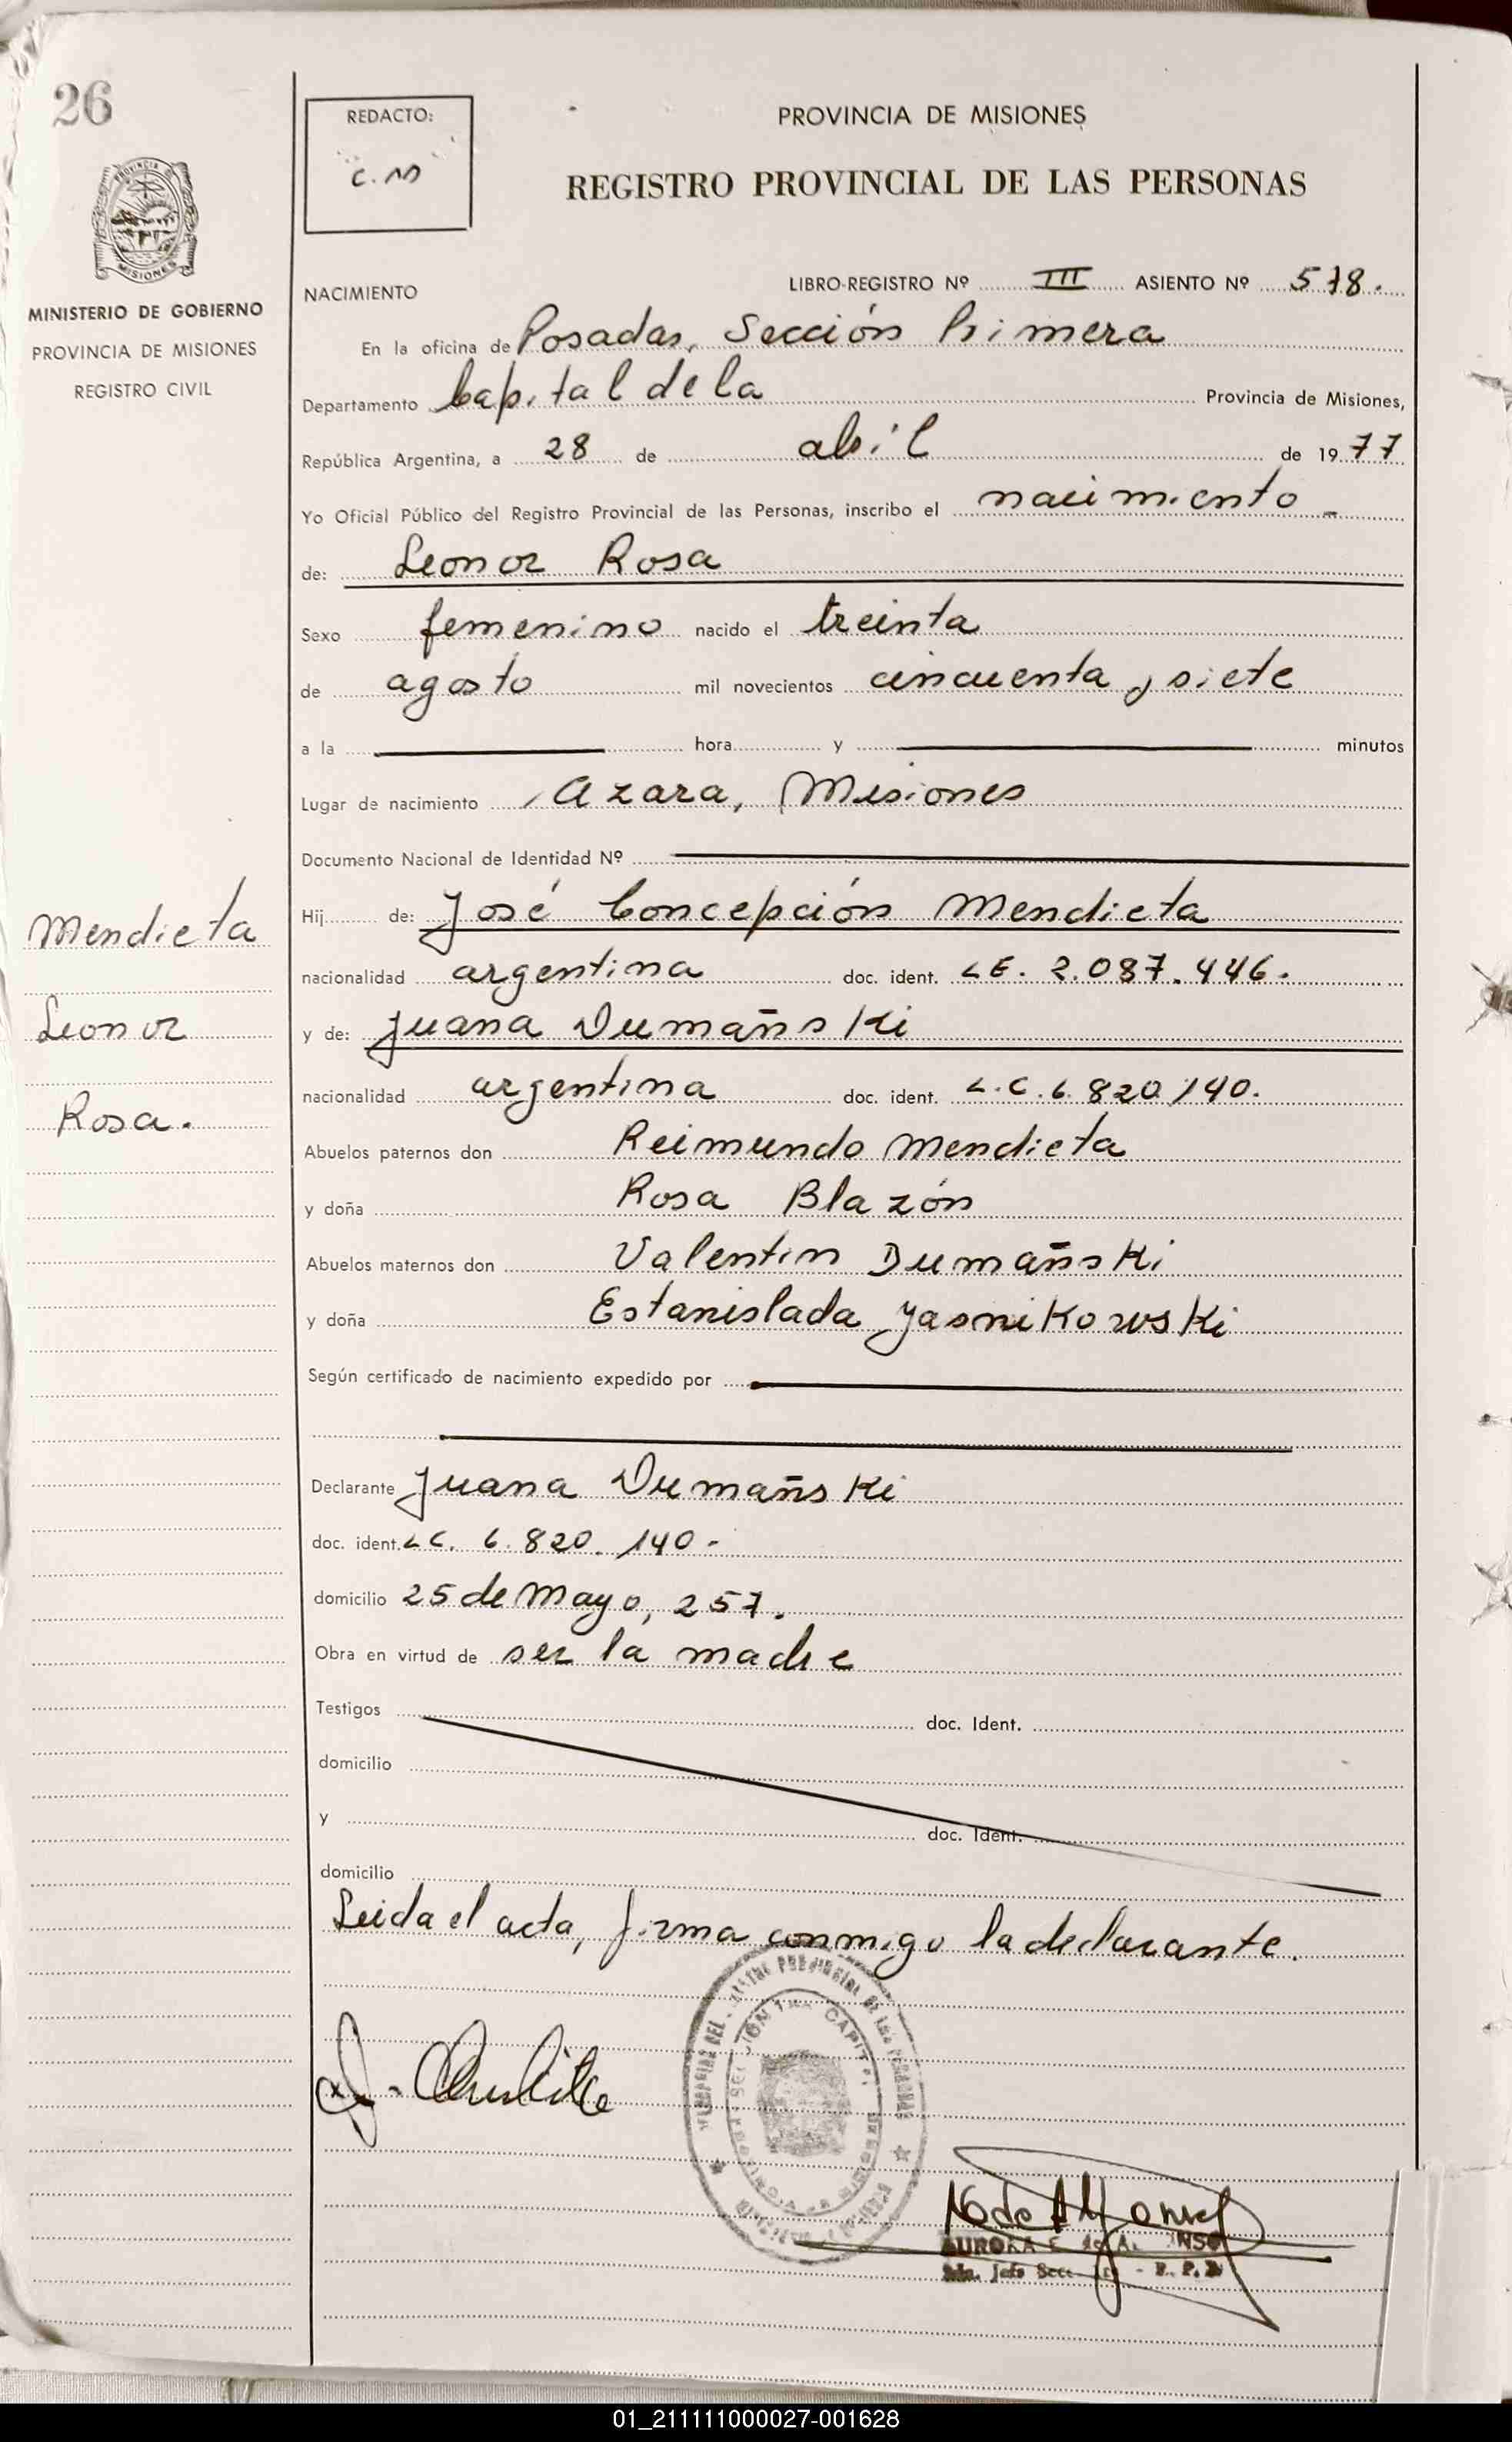 26
REDACTO:
C. M
PROVINCIA DE MISIONES
REGISTRO PROVINCIAL DE LAS PERSONAS
PROVINCIA
MISIONES
MINISTERIO DE GOBIERNO
PROVINCIA DE MISIONES
REGISTRO CIVIL
NACIMIENTO
LIBRO-REGISTRO Nº III ASIENTO Nº 578.
En la oficina de Posadas, Sección Primera
Departamento Capital de la Provincia de Misiones,
República Argentina, a 28 de abril de 1977
Yo Oficial Público del Registro Provincial de las Personas, inscribo el nacimiento
de: Leonor Rosa
Sexo femenino nacido el treinta
de agosto mil novecientos cincuenta y siete
a la hora y minutos
Lugar de nacimiento Azara, Misiones
Documento Nacional de Identidad Nº
Mendieta
Leonor
Rosa.
Hij de: José Concepción Mendieta
nacionalidad argentina doc. ident. L E. 2.087.446.
y de: Juana Dumañski
nacionalidad argentina doc. ident. L.C. 6.820.140.
Abuelos paternos don Reimundo Mendieta
y doña Rosa Blazón
Abuelos maternos don Valentin Dumañski
y doña Estanislada Yasnikowski
Según certificado de nacimiento expedido por
Declarante Juana Dumañski
doc. ident. L C. 6.820.140-
domicilio 25 de Mayo, 257.
Obra en virtud de ser la madre
Testigos doc. Ident.
domicilio
y doc. Ident.
domicilio
Leida el acta, firma conmigo la declarante.
01_211111000027-001628